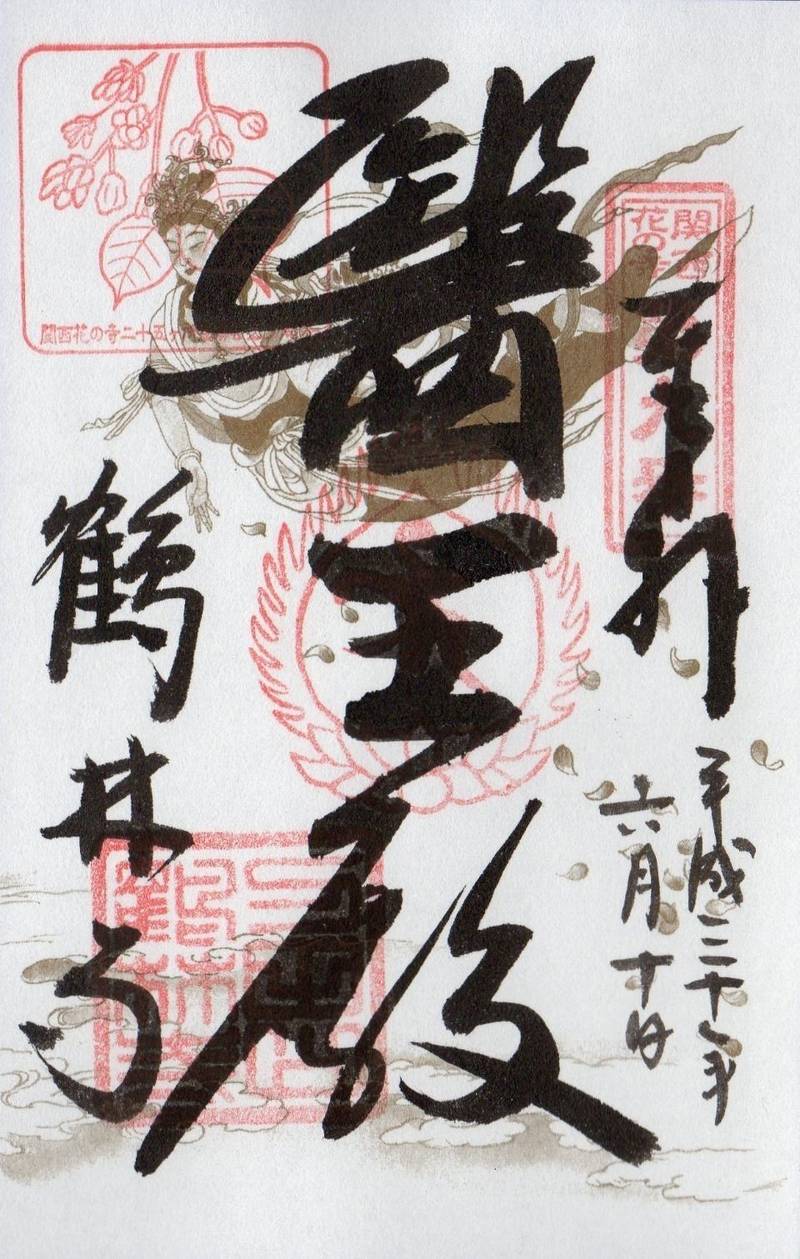 奉拝
関西
花の寺
平成二十
六月十日
醫王殿
鶴林寺
関西花の寺二十五ヶ